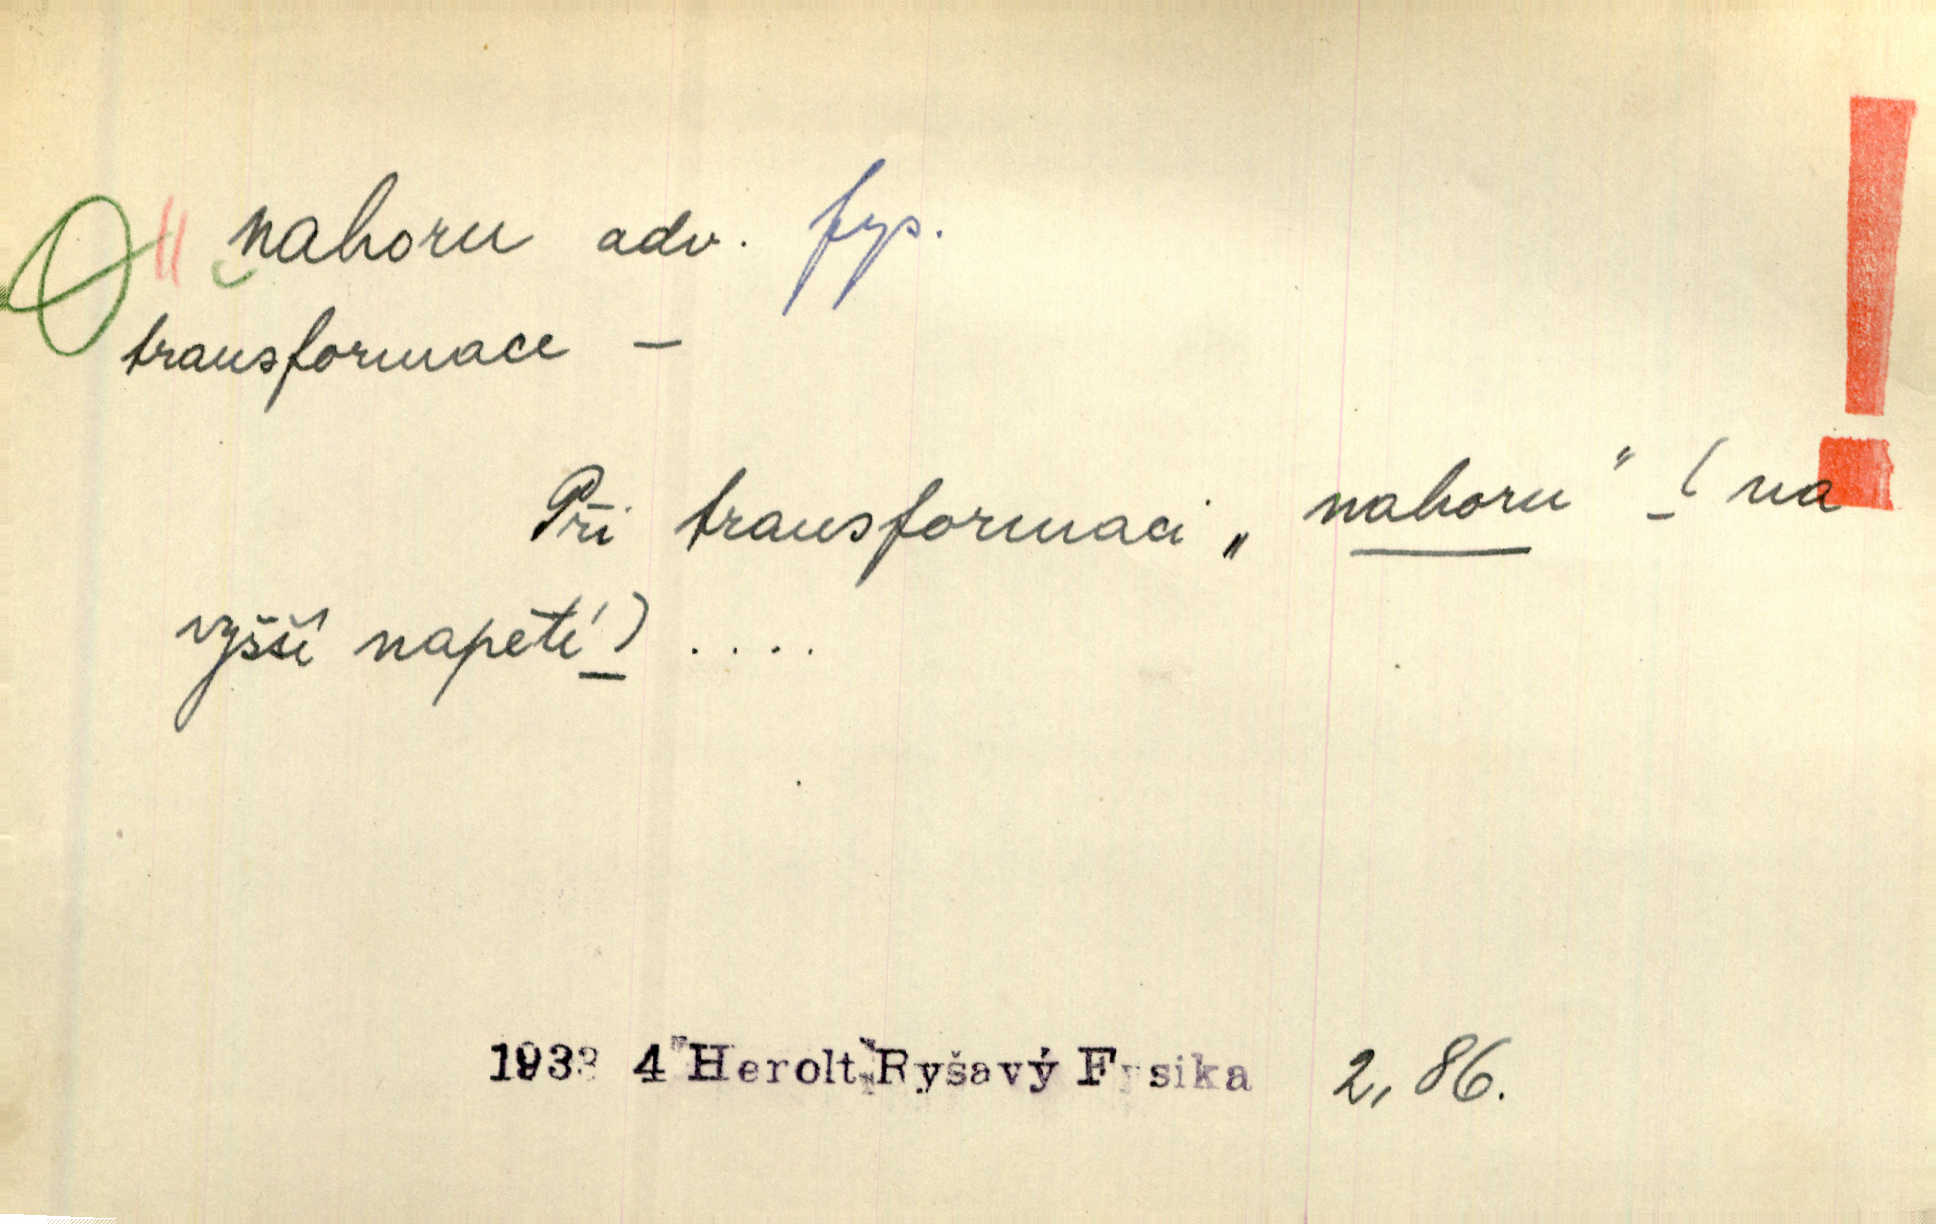 nahoru adv. fys.
transformace –
Při transformaci „nahoru" (na
vyšší napětí) ....
1933 4 Herolt Ryšavý Fysika 2, 86.